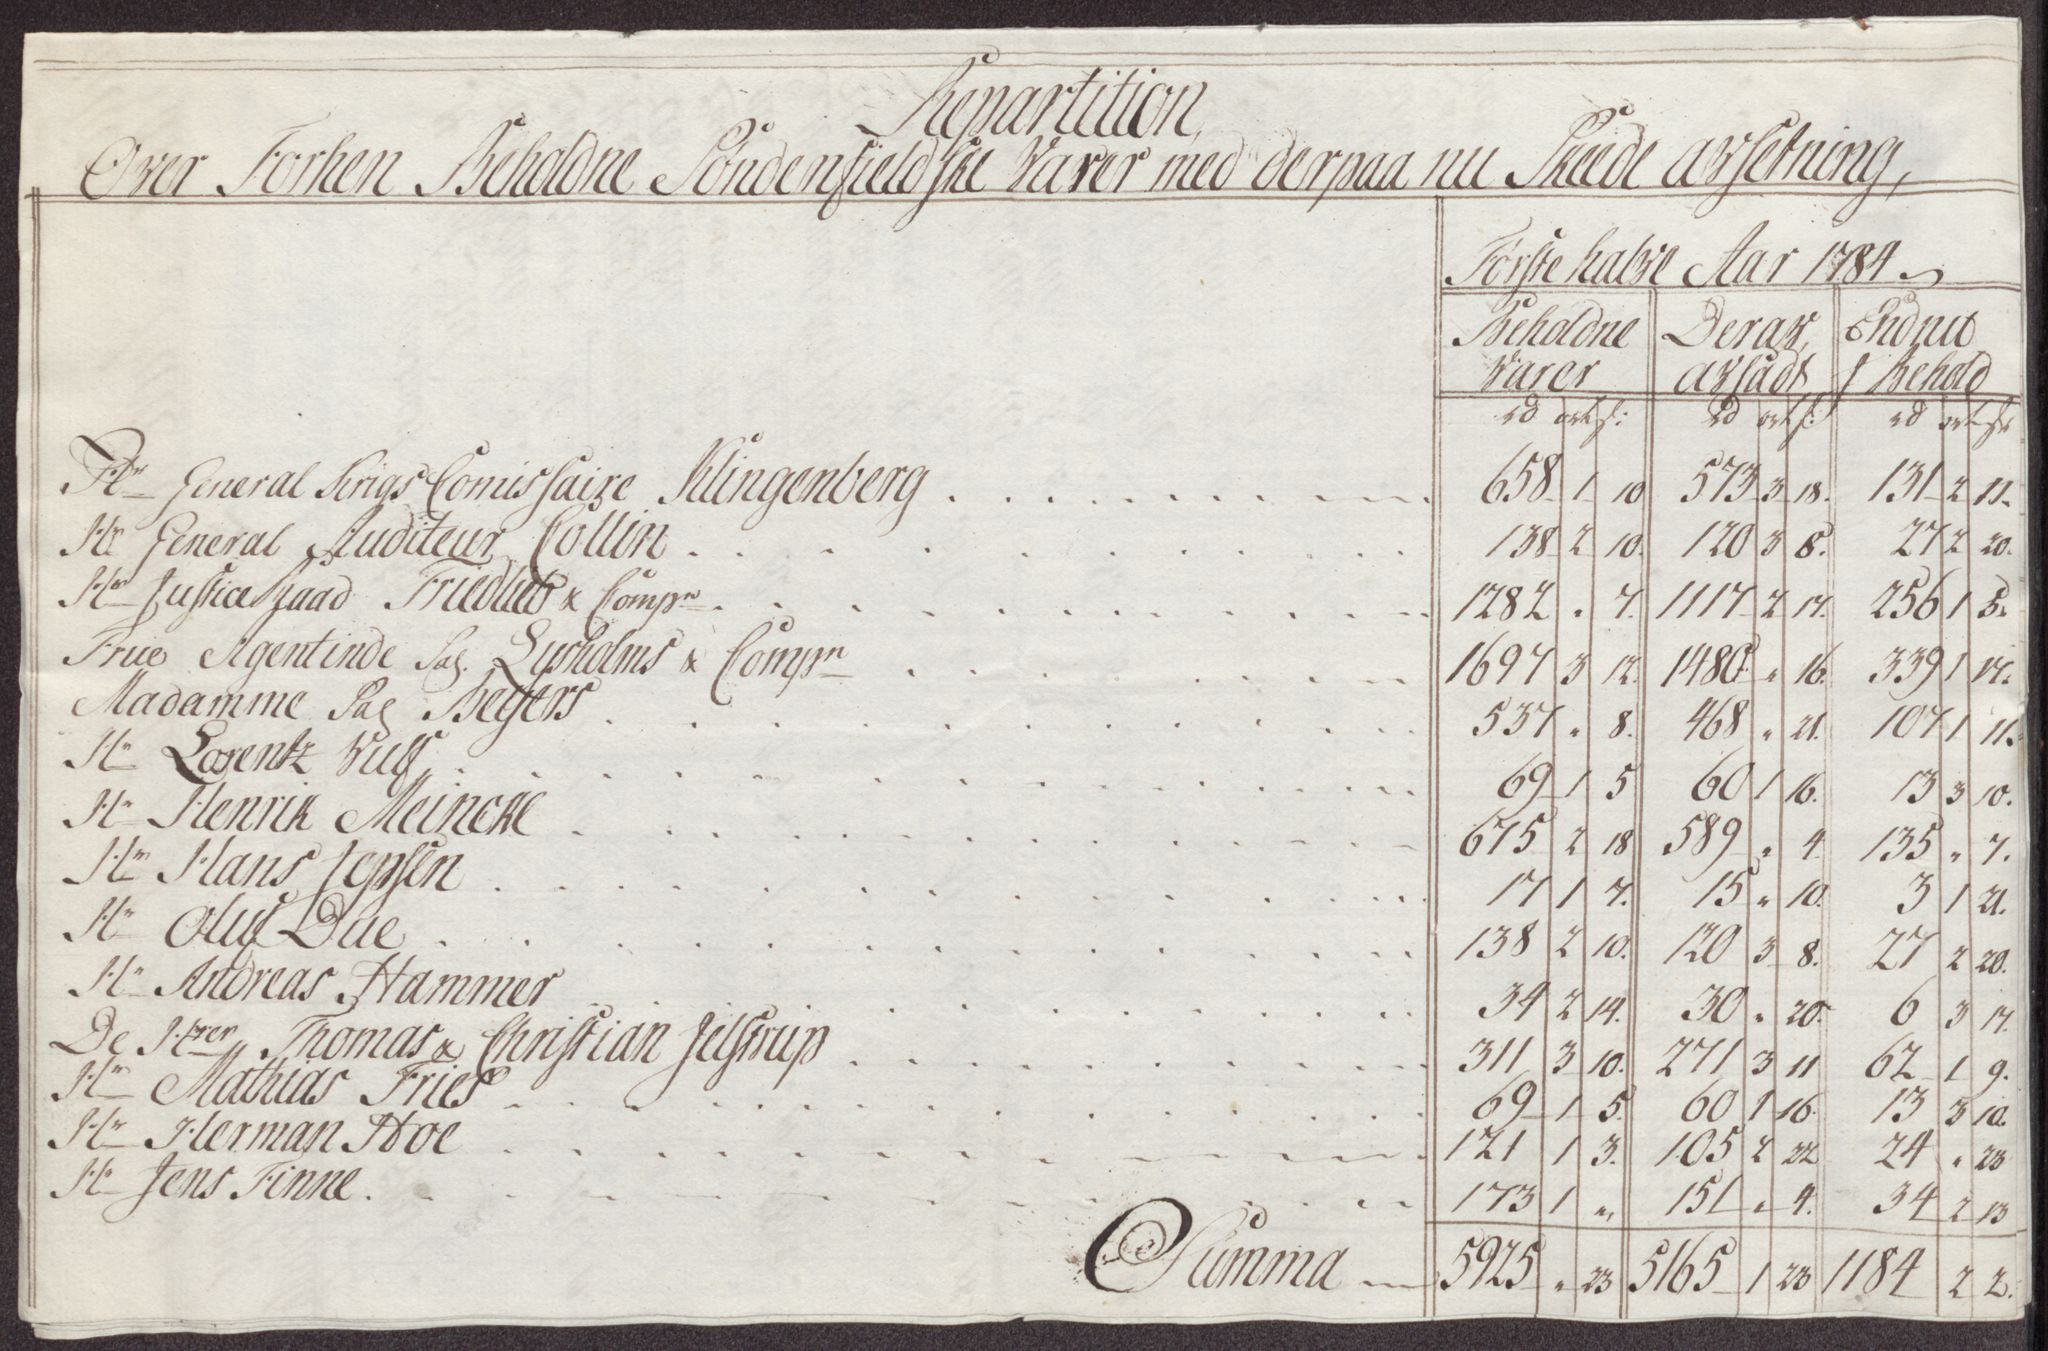 Repartition,
Over Forhen Beholdne Söndenfieldske Varer med derpaa nu Skeede avsetning,
Förste halve Aar 1784
Beholdne Varer | Derav, avsadt | Endnu J Behold
rd ort s: | rd ort s: | rd ort s:
Hr General Krigs Comissaire Klingenberg . . . 658 1 10 | 573 3 18. | 131 2 11.
Hr General Auditeur Collin . . . 138 2 10. | 120 3 8. | 27 2 20.
Hr Justice Raad Friedlieb & Compn . . . 1282 " 7. | 1117 2 17. | 256 1 5.
Frue Agentinde Sal. Lysholms & Compn . . . 1697 3 12. | 1480 " 16. | 339 1 17.
Madamme Sal Beyers . . . 537 " 8. | 468 " 21. | 107 1 11.
Hr Lorentz Vuff . . . 69 1 5 | 60 1 16. | 13 3 10.
Hr Henrik Meincke . . . 675 2 18 | 589 " 4 | 135 " 7.
Hr Hans Jepsen . . . 17 1 7. | 15 " 10. | 3 1 21.
Hr Oluf Due . . . 138 2 10. | 120 3 8. | 27 2 20.
Hr Andreas Hammer . . . 34 2 14. | 30 " 20. | 6 3 17.
De Hrer Thomas & Christian Jelstrup . . . 311 3 10. | 271 3 11 | 62 1 9.
Hr Mathias Fries . . . 69 1 5. | 60 1 16. | 13 3 10.
Hr Herman Hoe . . . 121 1 3. | 105 2 22 | 24 " 23
Hr Jens Finne . . . 173 1 " | 151 " 4. | 34 2 13
Summa 5925 " 23 | 5165 1 23 | 1184 2 2.